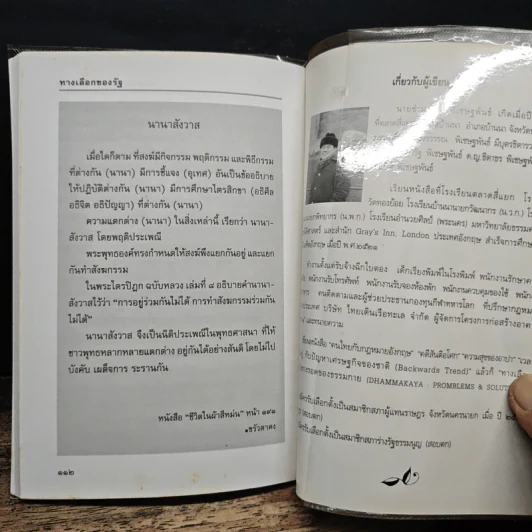 ทางเลือกของรัฐ
นานาสังวาส
เมื่อใดก็ตาม ที่สงฆ์มีกิจกรรม พฤติกรรม และพิธีกรรม
ที่ต่างกัน (นานา) มีการชี้แจง (อุเทศ) อันเป็นข้ออธิบาย
ให้ปฏิบัติต่างกัน (นานา) มีการศึกษาไตรสิกขา (อธิศีล
อธิจิต อธิปัญญา) ที่ต่างกัน (นานา)
ความแตกต่าง (นานา) ในสิ่งเหล่านี้ เรียกว่า นานา-
สังวาส โดยพฤติประเพณี
พระพุทธองค์ทรงกำหนดให้สงฆ์พึงแยกกันอยู่ และแยก
กันทำสังฆกรรม
ในพระไตรปิฎก ฉบับหลวง เล่มที่ ๔ อธิบายคำนานา-
สังวาสไว้ว่า "การอยู่ร่วมกันไม่ได้ การทำสังฆกรรมร่วมกัน
ไม่ได้"
นานาสังวาส จึงเป็นนิติประเพณีในพุทธศาสนา ที่ให้
ชาวพุทธหลากหลายแตกต่าง อยู่กันได้อย่างสันติ โดยไม่ไป
บังคับ เผด็จการ ระรานกัน
หนังสือ "ชีวิตในผ้าสีหม่น" หน้า ๑๙๑
๑๑๒
เกี่ยวกับผู้เขียน
พิเชษฐพันธ์ เกิดเมื่อปี
อำเภอบ้านนา จังหวัด
พิเชษฐพันธ์ มีบุตรธิดารว
พิเชษฐพันธ์ ด.ญ.ชิดาธร พิเชษ
เรียนหนังสือที่โรงเรียนตลาดสี่แยก โรงเ
วัดทองย้อย โรงเรียนบ้านนานายกวัฒนากร (น.ร.ก.) โร
(น.พ.ก.) โรงเรียนอำนวยศิลป์ (พระนคร) มหาวิทยาลัยธรรมศ
และสำนัก Gray's Inn, London ประเทศอังกฤษ สำเร็จการศึก
อังกฤษ เมื่อปี พ.ศ.๒๕๑๑
ทำงานตั้งแต่รับจ้างฉีกใบตอง เด็กเรียงพิมพ์ในโรงพิมพ์ พนักงานรักษาค
พนักงานรับโทรศัพท์ พนักงานรับจองห้องพัก พนักงานควบคุมของใช้ พนัก
คนติดตามและผู้ช่วยประธานกองทุนกีฬาทหารโลก ที่ปรึกษากฎหม
บริษัท ไทยเดินเรือทะเล จำกัด ผู้จัดการโครงการก่อสร้างอาคา
และทนายความ
"คนไทยกับกฎหมายอังกฤษ" "คดีสันติอโศก" "ความสุขของอาปา" "เวล
กับปัญหาเศรษฐกิจของชาติ (Backwards Trend)" แล้วก็ "ทางเลือ
ทางรอดของธรรมกาย (DHAMMAKAYA : PROMBLEMS & SOLUT
รับเลือกตั้งเป็นสมาชิกสภาผู้แทนราษฎร จังหวัดนครนายก เมื่อ ปี ๒๕
(สอบตก)
รับเลือกตั้งเป็นสมาชิกสภาร่างรัฐธรรมนูญ (สอบตก)